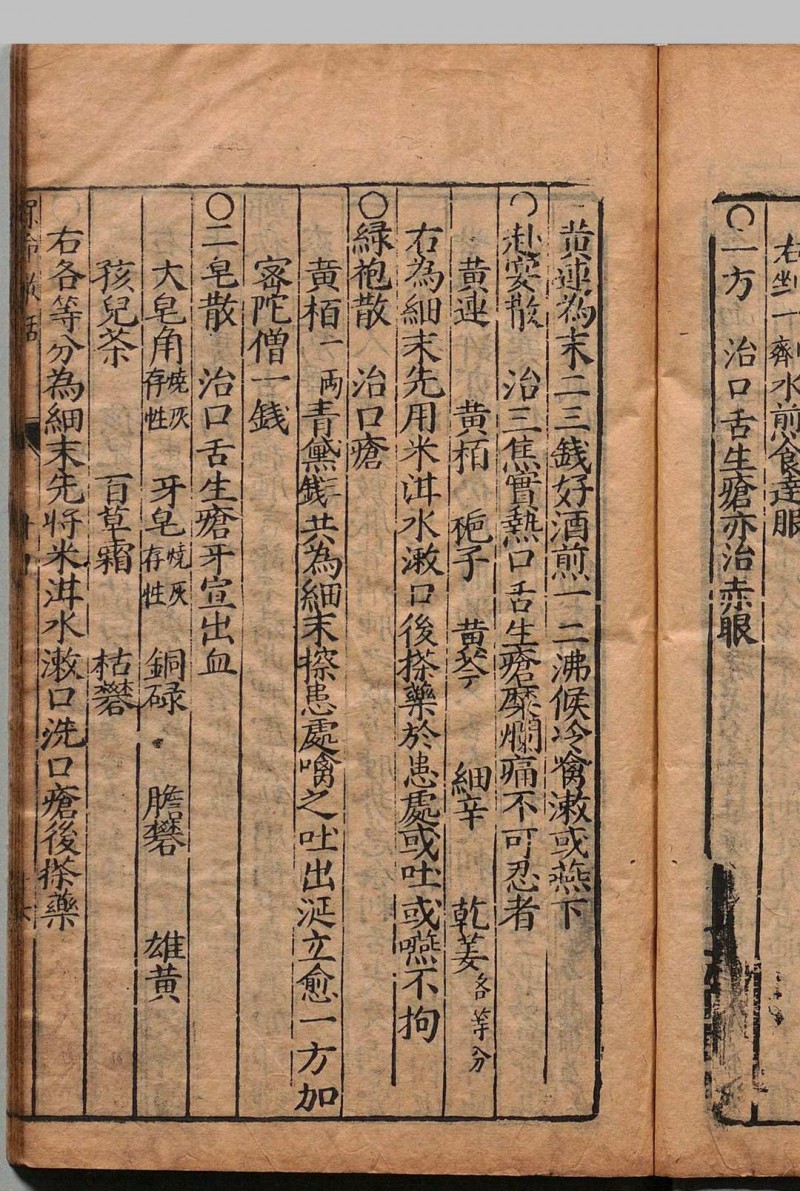 右剉一齊水煎食遠服
○一方　治口舌生瘡亦治赤眼
黄連為末二三錢好酒煎一二沸候冷噙漱或燕下
○赴宴散　治三焦實熱口舌生瘡糜爛痛不可忍者
黄連　黄栢　梔子　黄芩　細辛　乾姜各等分
右為細末先用米泔水漱口後搽藥於患處或吐或嚥不拘
○緑袍散　治口瘡
黄栢一兩青黛三錢共為細末搽患處噙之吐出涎立愈一方加
宻陀僧一錢
○二皂散　治口舌生瘡牙宣出血
大皂角燒灰存性　牙皂燒灰存性　銅碌　膽礬　雄黄
孩兒茶　百草霜　枯礬
右各等分為細末先将米泔水漱口洗口瘡後搽藥